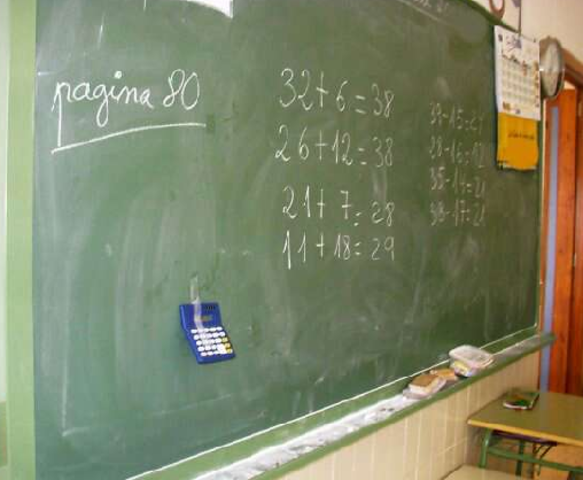 pagina 80
32+6=38
26+12=38
21+7=28
11+18=29
39-15=24
28-16=12
35-14=21
38-17=21